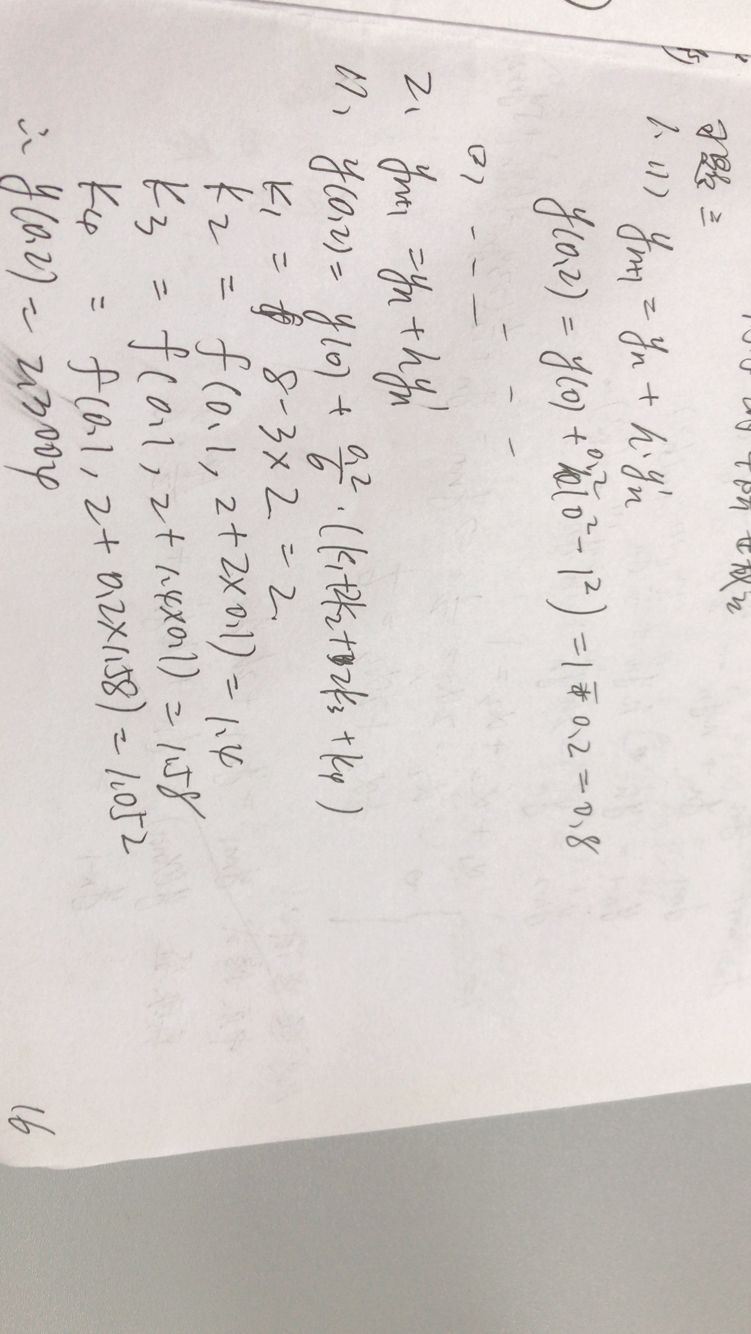 习题二
1. (1) yn+1 = yn + h·yn'
y(0.2) = y(0) + 0.2(0²-1²) = 1 - 0.2 = 0.8
2. yn+1 = yn + hyn'
(1). y(0.2) = y(0) + 0.2/6 · (k1+2k2+2k3+k4)
k1 = 8-3×2 = 2
k2 = f(0.1, 2+2×0.1) = 1.4
k3 = f(0.1, 2+1.4×0.1) = 1.58
k4 = f(0.1, 2+0.2×1.58) = 1.052
∴ y(0.2) = 2.3004
16